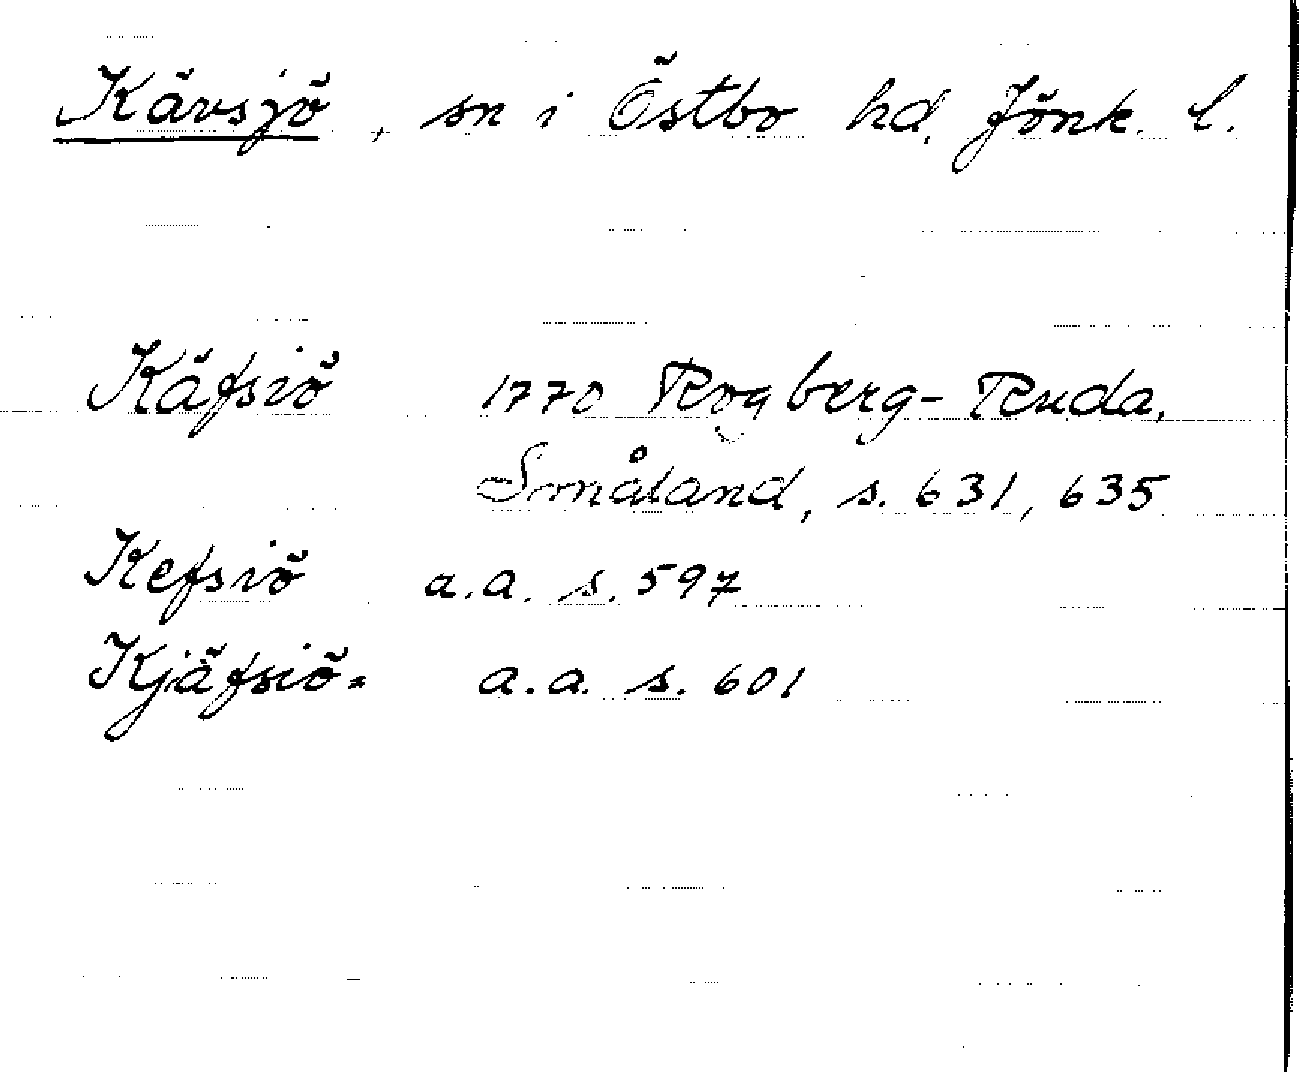 Kävsjö, sn i Östbo hd. Jönk. l.
Käfsiö 1770 Rogberg-Ruda,
Småland, s. 631, 635
Kefsiö a.a. s. 597
Kjäfsiö- a.a. s. 601